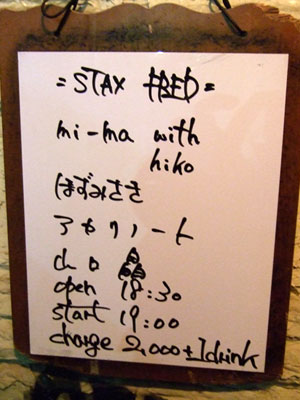 = STAX FRED =
mi-ma with
hiko
ほずみさき
open 18:30
start 19:00
charge 2,000+1drink